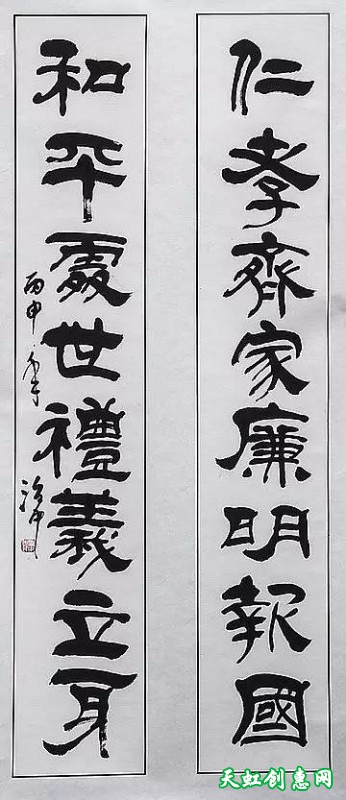 仁孝齊家廉明報國
和平處世禮義立身
丙申
天虹创惠网